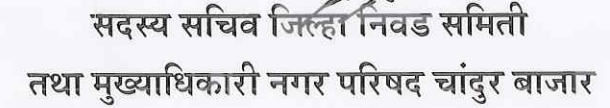 सदस्य सचिव जिल्हा निवड समिती
तथा मुख्याधिकारी नगर परिषद चांदुर बाजार